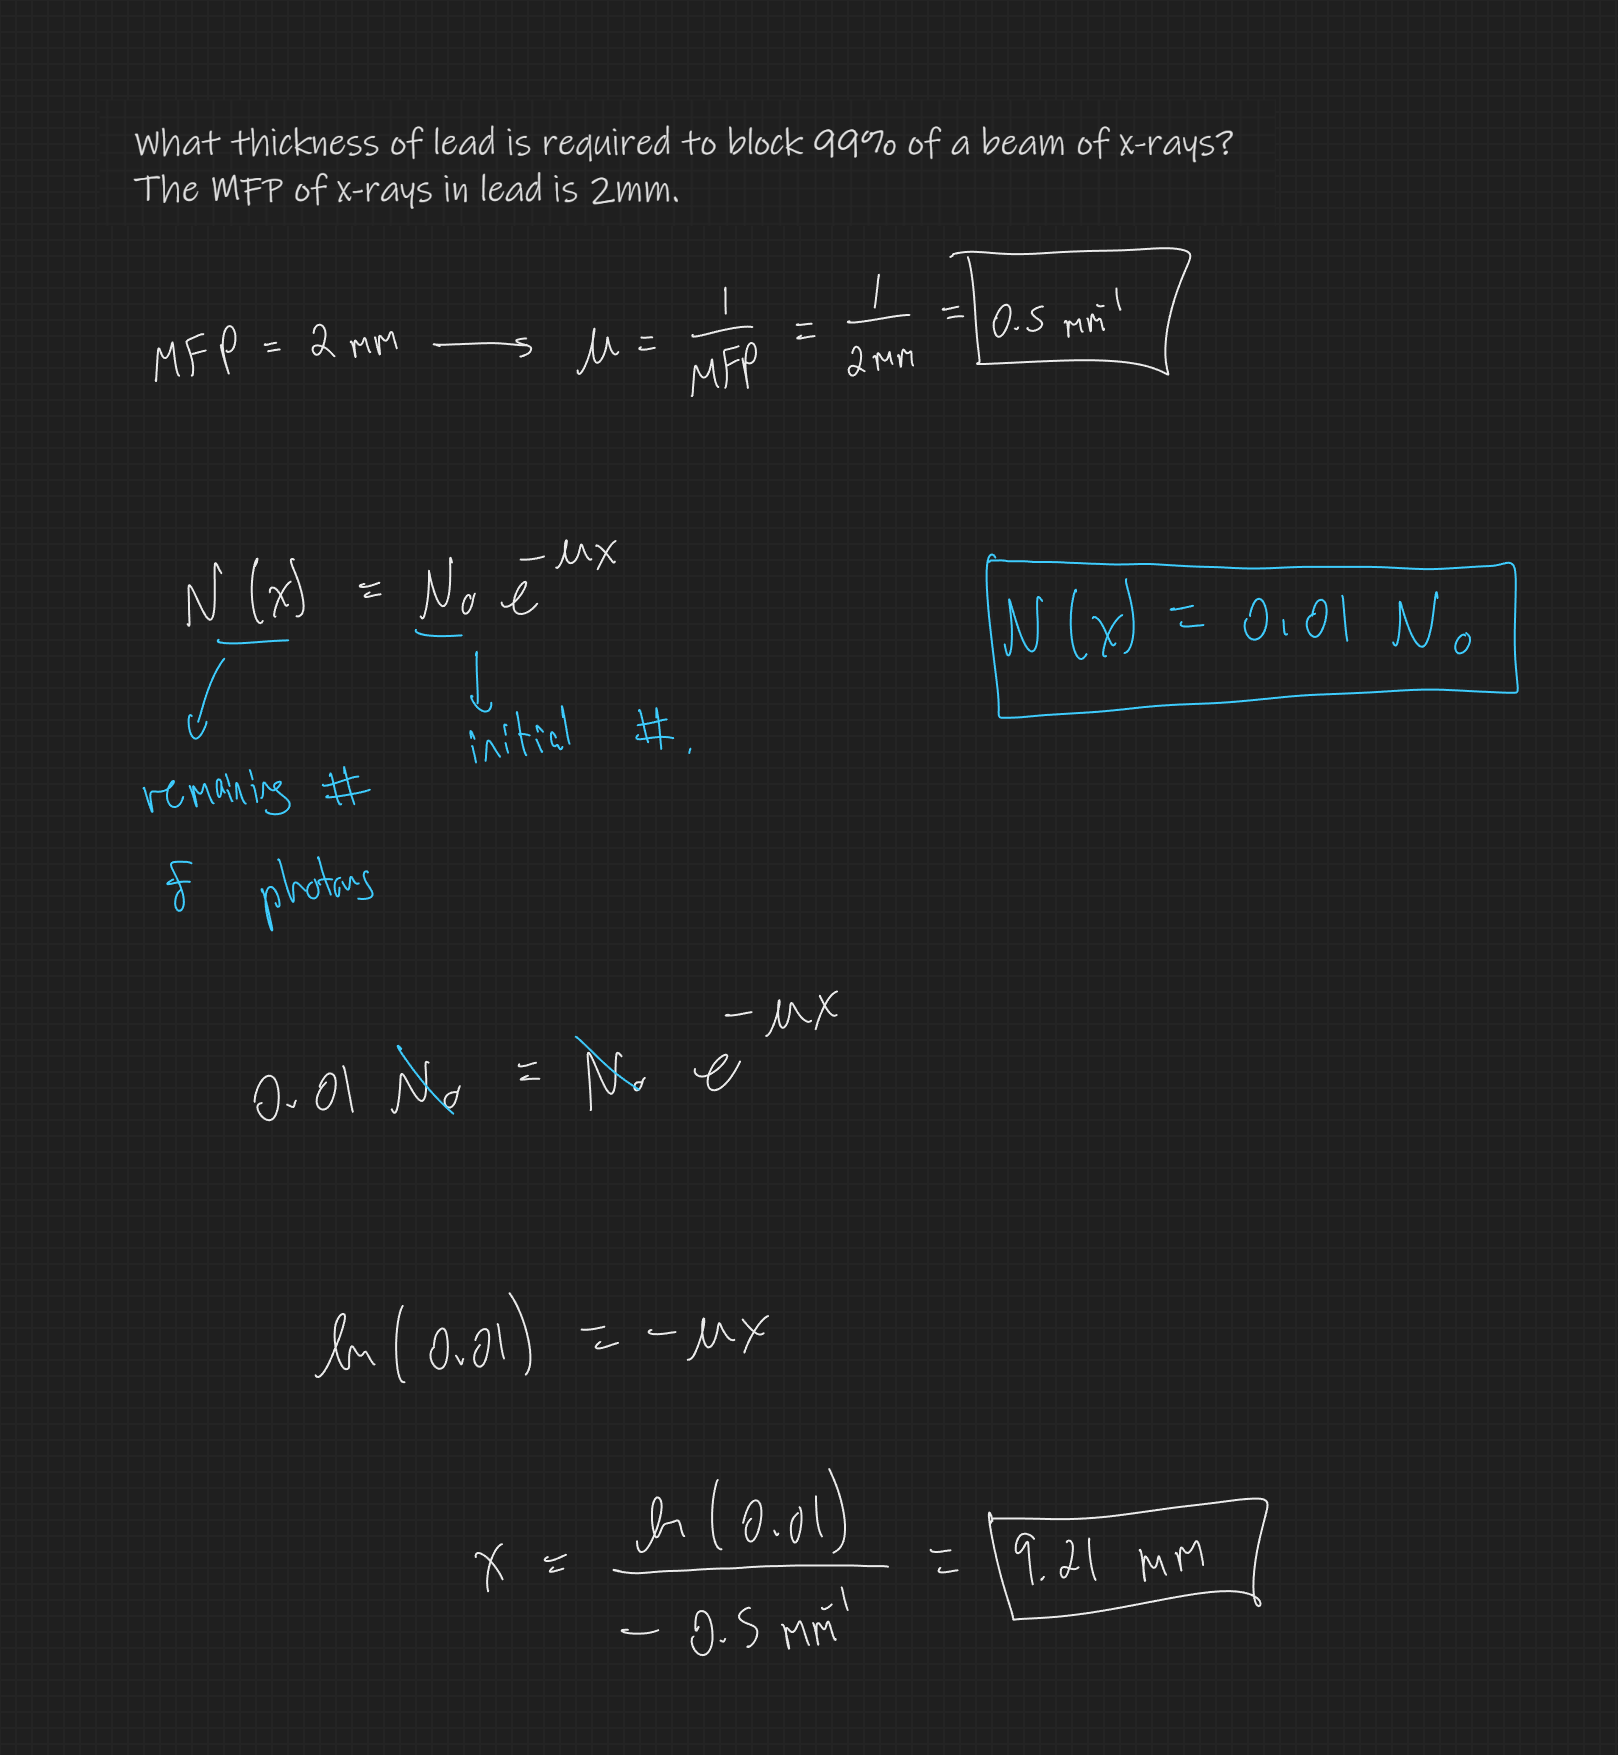 What thickness of lead is required to block 99% of a beam of x-rays?
The MFP of x-rays in lead is 2mm.
MFP = 2 mm → μ = 1/MFP = 1/2mm = 0.5 mm⁻¹
N(x) = N₀ e^(-μx)
N(x) = 0.01 N₀
initial #.
remaining #
of photons
0.01 N₀ = N₀ e^(-μx)
ln(0.01) = -μx
x = ln(0.01)/(-0.5 mm⁻¹) = 9.21 mm